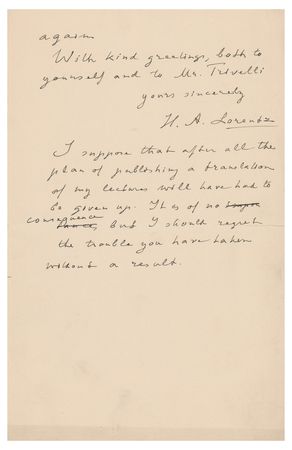 again.
With kind greetings, both to
yourself and to Mr. Trivelli
yours sincerely
H. A. Lorentz
I suppose that after all the
plan of publishing a translation
of my lectures will have had to
be given up. It is of no
consequence, but I should regret
the trouble you have taken
without a result.